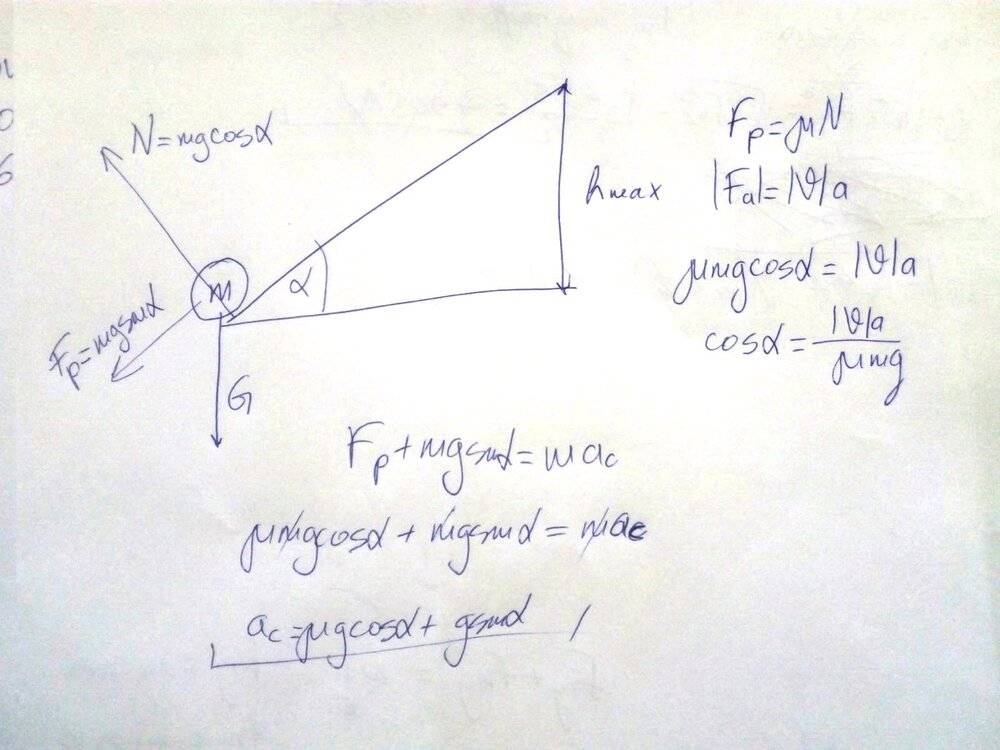 N=mgcosα
m
α
hmax
Fp=mgsinα
G
Fp=μN
|Fa|=|ϑ|a
μmgcosα=|ϑ|a
cosα=|ϑ|a/μmg
Fp+mgsinα=mac
μmgcosα+mgsinα=mac
ac=μgcosα+gsinα